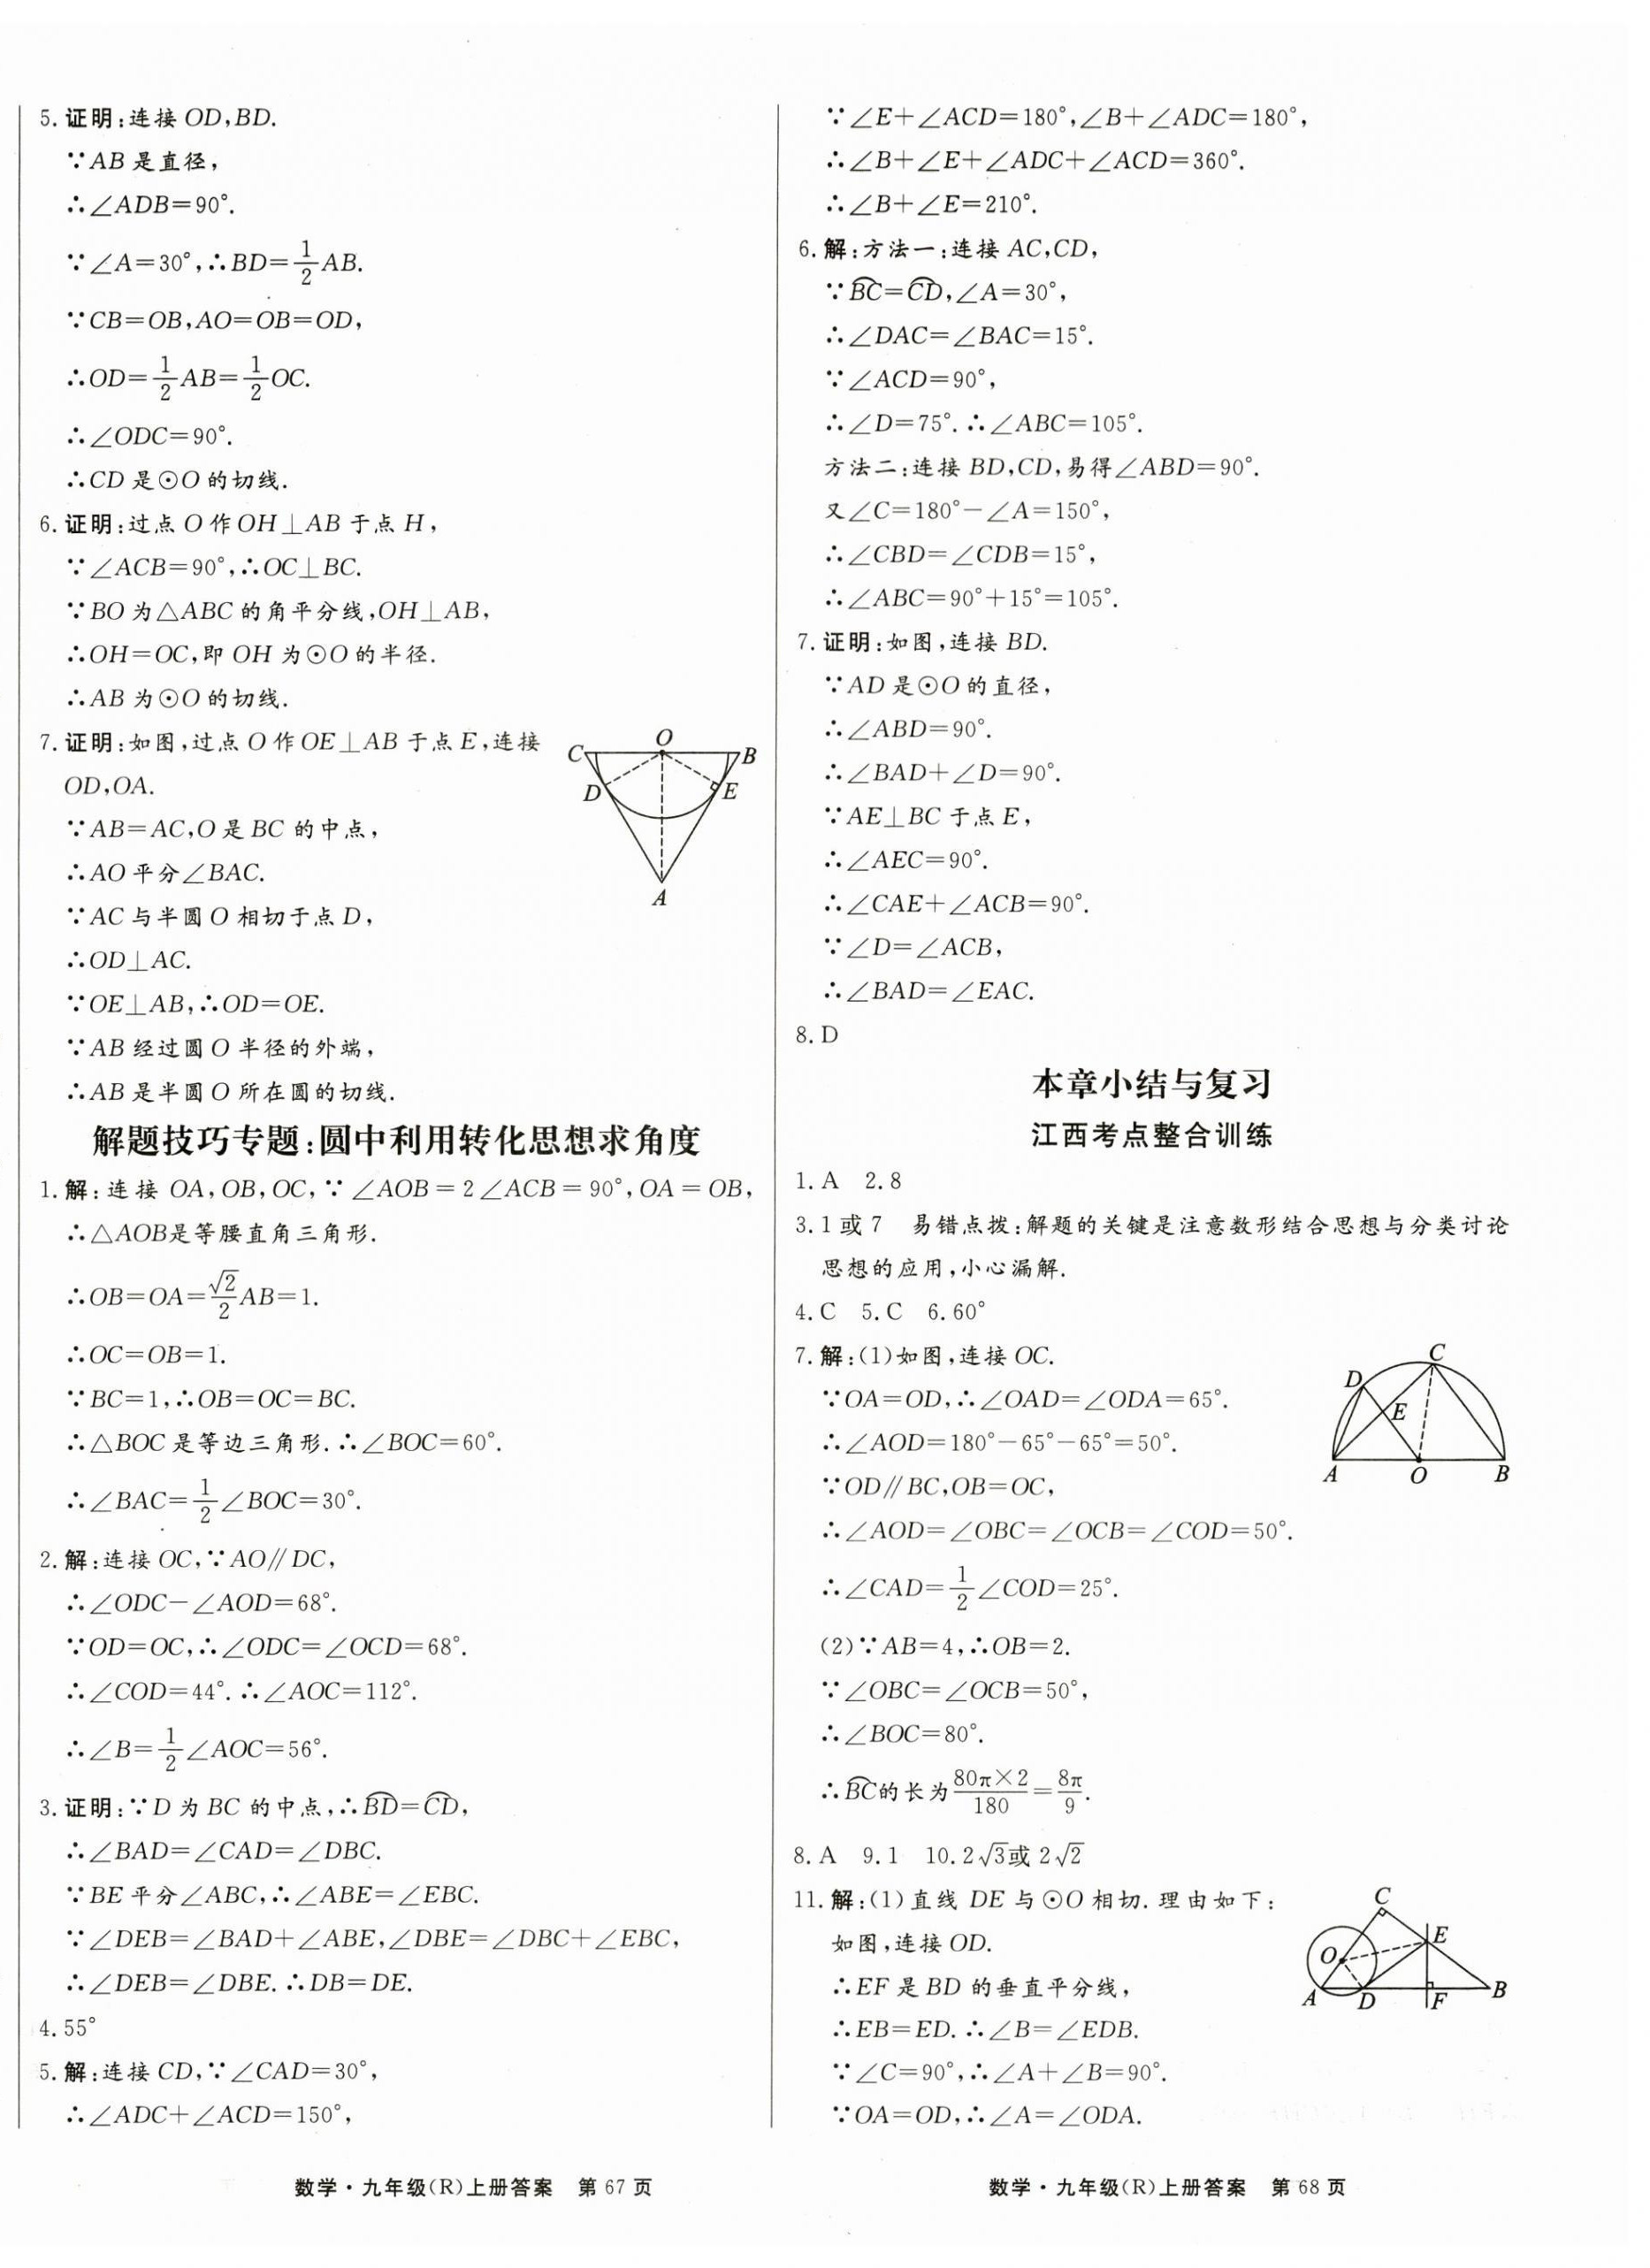 5. 证明:连接 OD,BD.
∵AB 是直径,
∴∠ADB=90°.
∵∠A=30°,∴BD=1/2AB.
∵CB=OB,AO=OB=OD,
∴OD=1/2AB=1/2OC.
∴∠ODC=90°.
∴CD 是⊙O 的切线.
6. 证明:过点 O 作 OH⊥AB 于点 H,
∵∠ACB=90°,∴OC⊥BC.
∵BO 为△ABC 的角平分线,OH⊥AB,
∴OH=OC,即 OH 为⊙O 的半径.
∴AB 为⊙O 的切线.
7. 证明:如图,过点 O 作 OE⊥AB 于点 E,连接
OD,OA.
∵AB=AC,O 是 BC 的中点,
∴AO 平分∠BAC.
∵AC 与半圆 O 相切于点 D,
∴OD⊥AC.
∵OE⊥AB,∴OD=OE.
∵AB 经过圆 O 半径的外端,
∴AB 是半圆 O 所在圆的切线.
C
O
B
D
E
A
解题技巧专题:圆中利用转化思想求角度
1. 解:连接 OA,OB,OC,∵∠AOB=2∠ACB=90°,OA=OB,
∴△AOB是等腰直角三角形.
∴OB=OA=√2/2AB=1.
∴OC=OB=1.
∵BC=1,∴OB=OC=BC.
∴△BOC 是等边三角形.∴∠BOC=60°.
∴∠BAC=1/2∠BOC=30°.
2. 解:连接 OC,∵AO∥DC,
∴∠ODC−∠AOD=68°.
∵OD=OC,∴∠ODC=∠OCD=68°.
∴∠COD=44°.∴∠AOC=112°.
∴∠B=1/2∠AOC=56°.
3. 证明:∵D 为 BC 的中点,∴⌒BD=⌒CD,
∴∠BAD=∠CAD=∠DBC.
∵BE 平分∠ABC,∴∠ABE=∠EBC.
∵∠DEB=∠BAD+∠ABE,∠DBE=∠DBC+∠EBC,
∴∠DEB=∠DBE.∴DB=DE.
4. 55°
5. 解:连接 CD,∵∠CAD=30°,
∴∠ADC+∠ACD=150°,
数学·九年级(R)上册答案 第 67 页
∵∠E+∠ACD=180°,∠B+∠ADC=180°,
∴∠B+∠E+∠ADC+∠ACD=360°.
∴∠B+∠E=210°.
6. 解:方法一:连接 AC,CD,
∵⌒BC=⌒CD,∠A=30°,
∴∠DAC=∠BAC=15°.
∵∠ACD=90°,
∴∠D=75°.∴∠ABC=105°.
方法二:连接 BD,CD,易得∠ABD=90°.
又∠C=180°−∠A=150°,
∴∠CBD=∠CDB=15°,
∴∠ABC=90°+15°=105°.
7. 证明:如图,连接 BD.
∵AD 是⊙O 的直径,
∴∠ABD=90°.
∴∠BAD+∠D=90°.
∵AE⊥BC 于点 E,
∴∠AEC=90°.
∴∠CAE+∠ACB=90°.
∵∠D=∠ACB,
∴∠BAD=∠EAC.
8. D
本章小结与复习
江西考点整合训练
1. A 2. 8
3. 1 或 7 易错点拨:解题的关键是注意数形结合思想与分类讨论
思想的应用,小心漏解.
4. C 5. C 6. 60°
7. 解:(1)如图,连接 OC.
∵OA=OD,∴∠OAD=∠ODA=65°.
∴∠AOD=180°−65°−65°=50°.
∵OD∥BC,OB=OC,
∴∠AOD=∠OBC=∠OCB=∠COD=50°.
∴∠CAD=1/2∠COD=25°.
(2)∵AB=4,∴OB=2.
∵∠OBC=∠OCB=50°,
∴∠BOC=80°.
∴⌒BC的长为80π×2/180=8π/9.
C
D
E
A
O
B
8. A 9. 1 10. 2√3或 2√2
11. 解:(1)直线 DE 与⊙O 相切.理由如下:
如图,连接 OD.
∴EF 是 BD 的垂直平分线,
∴EB=ED.∴∠B=∠EDB.
∵∠C=90°,∴∠A+∠B=90°.
∵OA=OD,∴∠A=∠ODA.
C
E
O
A
D
F
B
数学·九年级(R)上册答案 第 68 页